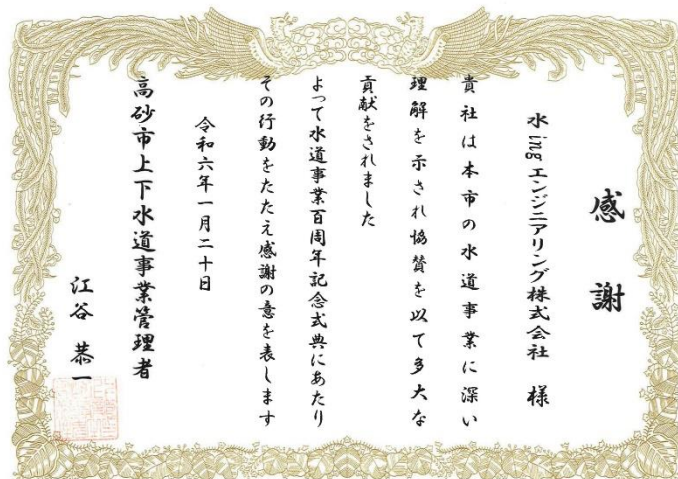 感謝
水ingエンジニアリング株式会社 様
貴社は本市の水道事業に深い
理解を示され協賛を以て多大な
貢献をされました
よって水道事業百周年記念式典にあたり
その行動をたたえ感謝の意を表します
令和六年一月二十日
高砂市上下水道事業管理者
江谷 恭一